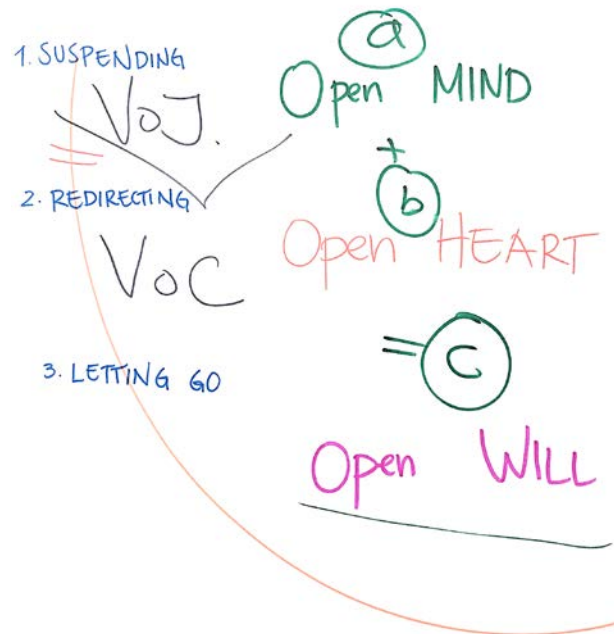 1. SUSPENDING
VOJ.
2. REDIRECTING
VOC
3. LETTING GO
a
Open MIND
+
b
Open HEART
= c
Open WILL